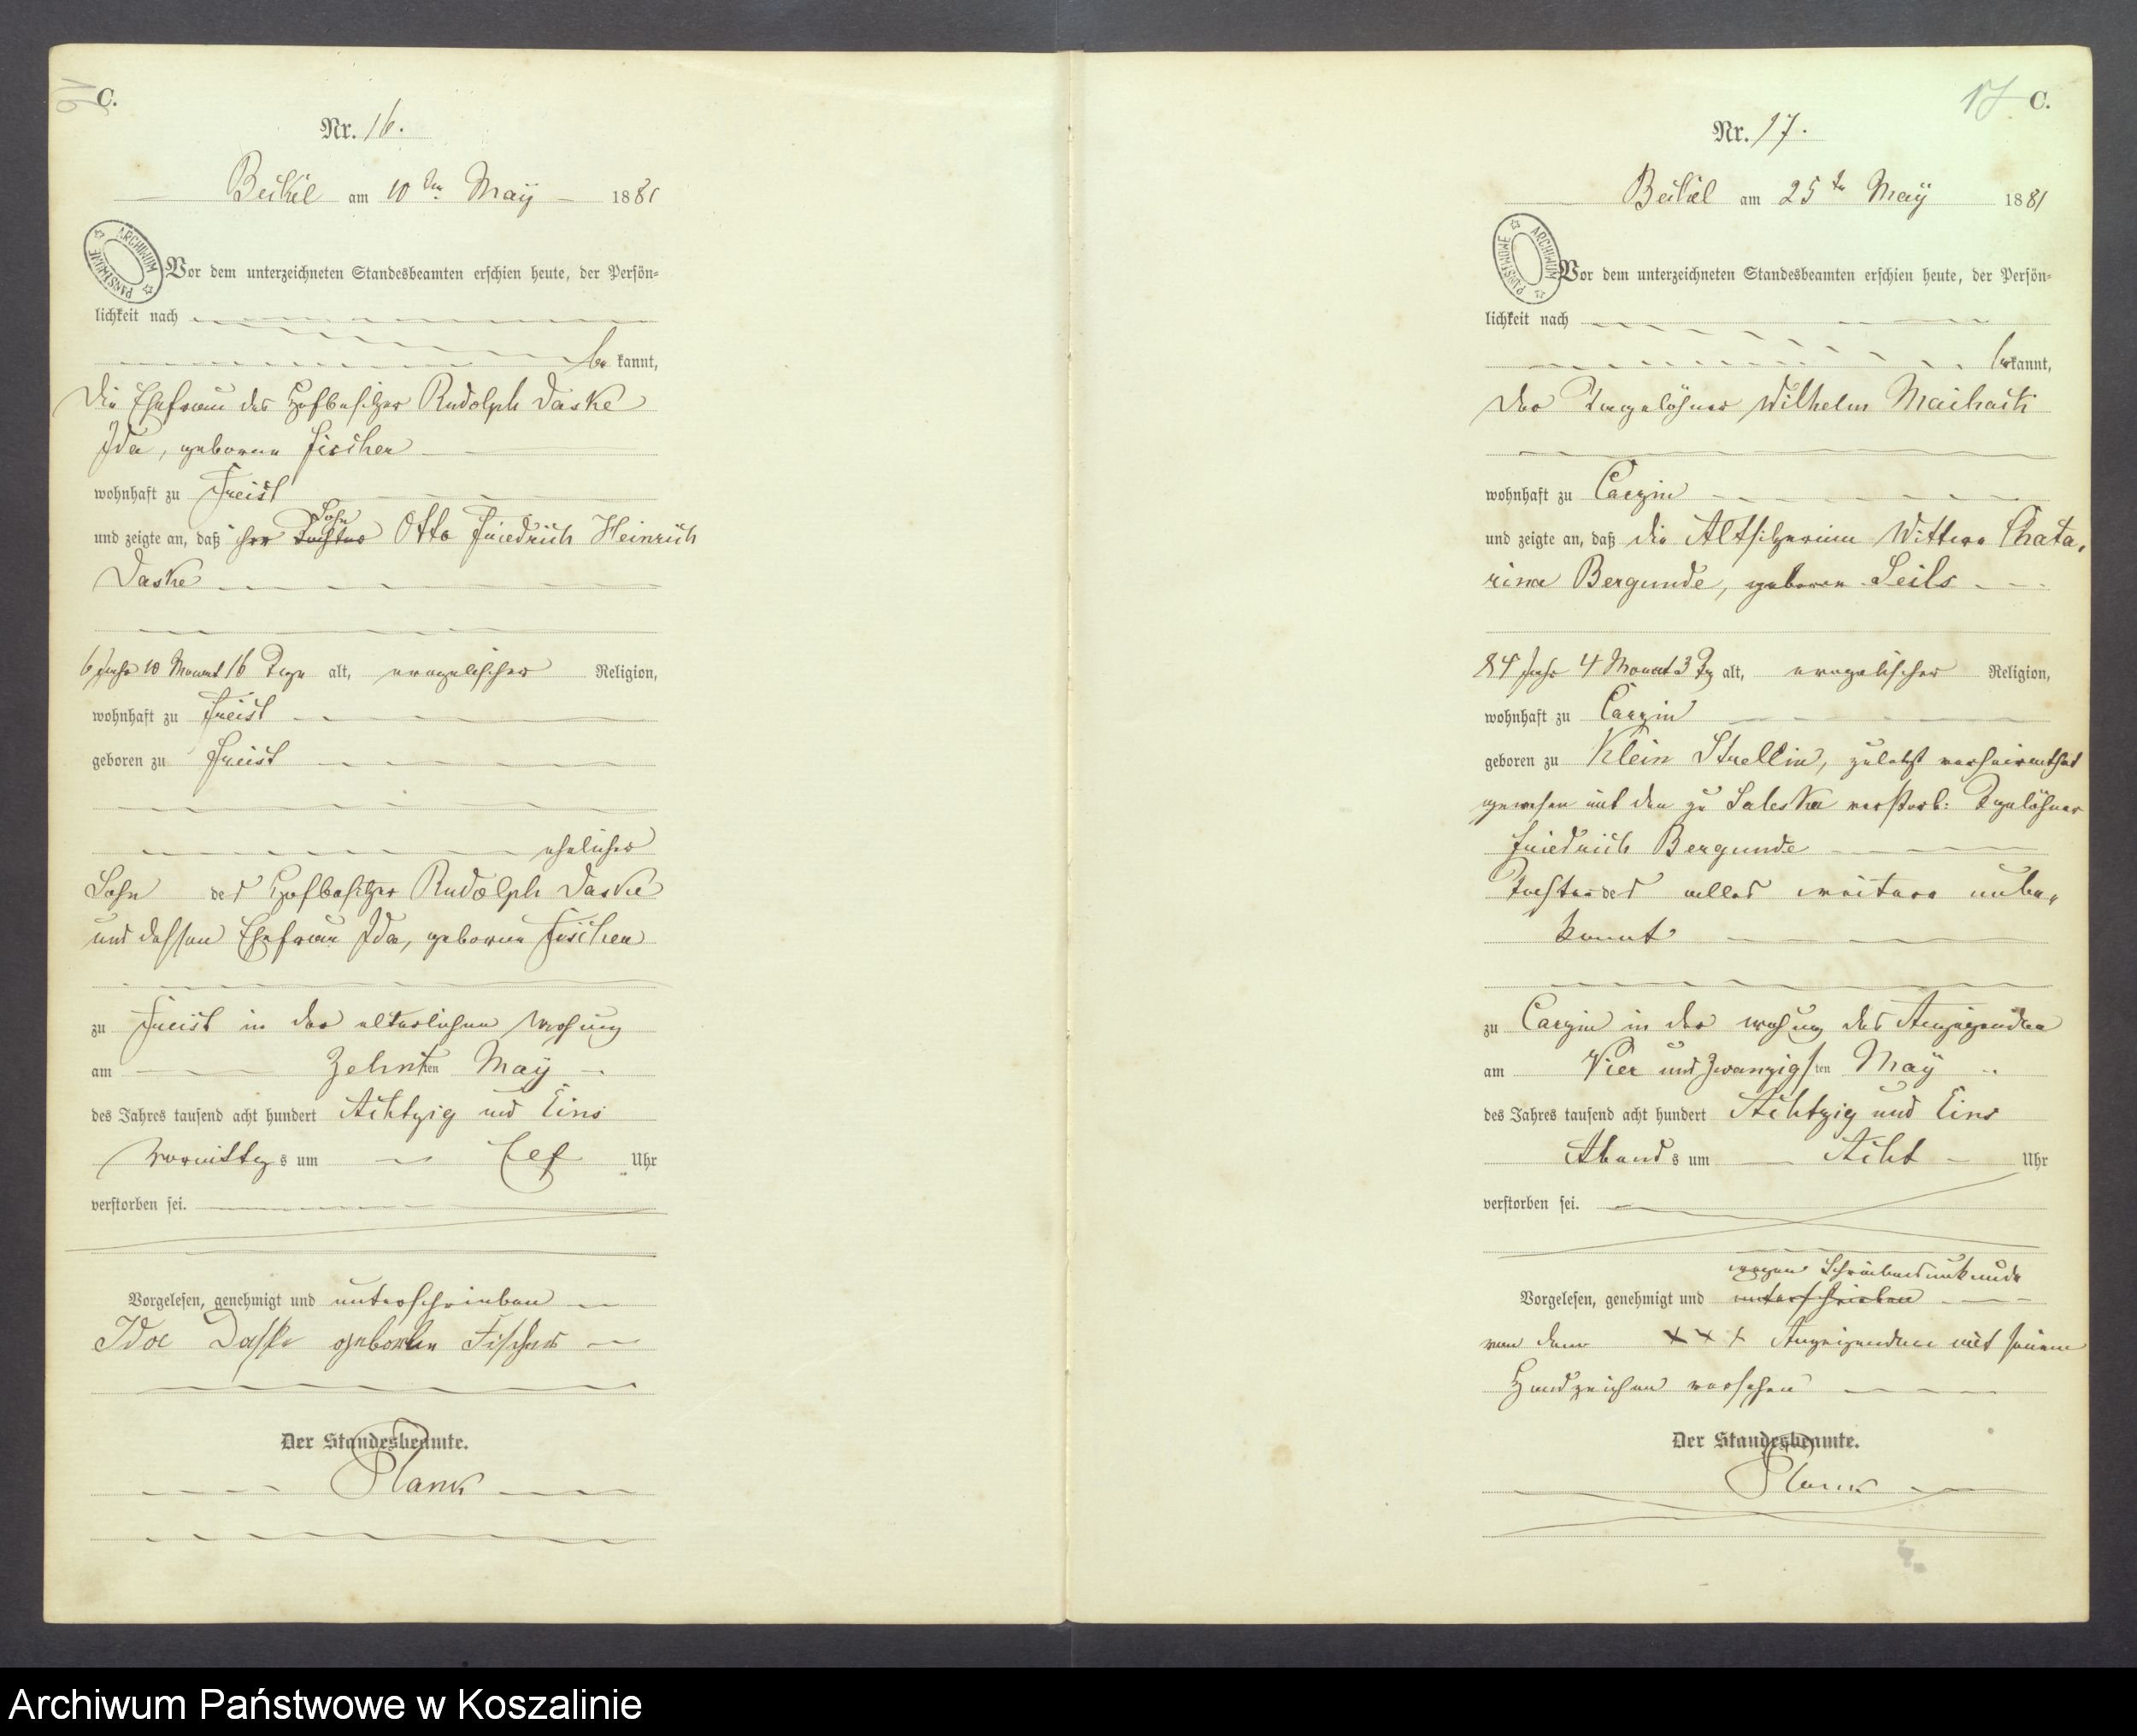 C.
Nr. 16.
Beckel am 10ten May 1881
ARCHIWUM PAŃSTWOWE
Vor dem unterzeichneten Standesbeamten erschien heute, der Persön=
lichkeit nach
be kannt,
die Ehefrau des Hofbesitzer Rudolph Daske
Ida, geborene Fischer
wohnhaft zu Freist
Sohn
und zeigte an, daß ihr Tochter Otto Friedrich Heinrich
Daske
6 Jahr 10 Monat 16 Tage alt, evangelischer Religion,
wohnhaft zu Freist
geboren zu Freist
ehelicher
Sohn des Hofbesitzer Rudolph Daske
und dessen Ehefrau Ida, geborene Fischer
zu Freist in der elterlichen Wohnung
am Zehnten May
des Jahres tausend acht hundert Achtzig und Eins
Vormittags um Elf Uhr
verstorben sei.
Vorgelesen, genehmigt und unterschrieben
Ida Daske geboren Fischer
Der Standesbeamte.
Plank
17 C.
Nr. 17.
Beckel am 25ten May 1881
ARCHIWUM PAŃSTWOWE
Vor dem unterzeichneten Standesbeamten erschien heute, der Persön=
lichkeit nach
bekannt,
der Tagelöhner Wilhelm
wohnhaft zu Carzin
und zeigte an, daß die Altsitzerin Wittwe Chata,
rina Bergunde, geboren Seils
84 Jahr 4 Monat 3 Tg alt, evangelischer Religion,
wohnhaft zu Carzin
geboren zu Klein Strellin, zuletzt verheirathet
gewesen mit den zu Saleske verstorb: Tagelöhner
Friedrich Bergunde
Tochter des alles weitere unbe,
kannt
zu Carzin in der Wohnung des Anzeigenden
am Vier und Zwanzigsten May
des Jahres tausend acht hundert Achtzig und Eins
Abends um Acht Uhr
verstorben sei.
wegen Schreibensunkunde
Vorgelesen, genehmigt und unterschrieben
von dem XXX Anzeigenden mit seinem
Handzeichen versehen
Der Standesbeamte.
Plank
Archiwum Państwowe w Koszalinie